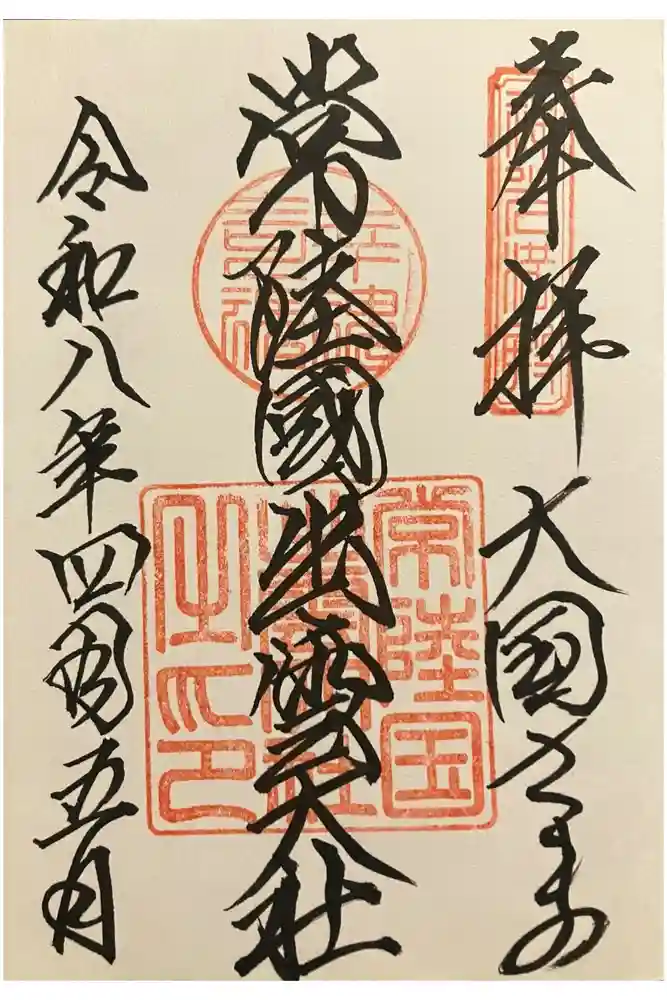 奉拝 大國さま
常陸國出雲大社
令和八年四月五日
常陸国
出雲大社
之印